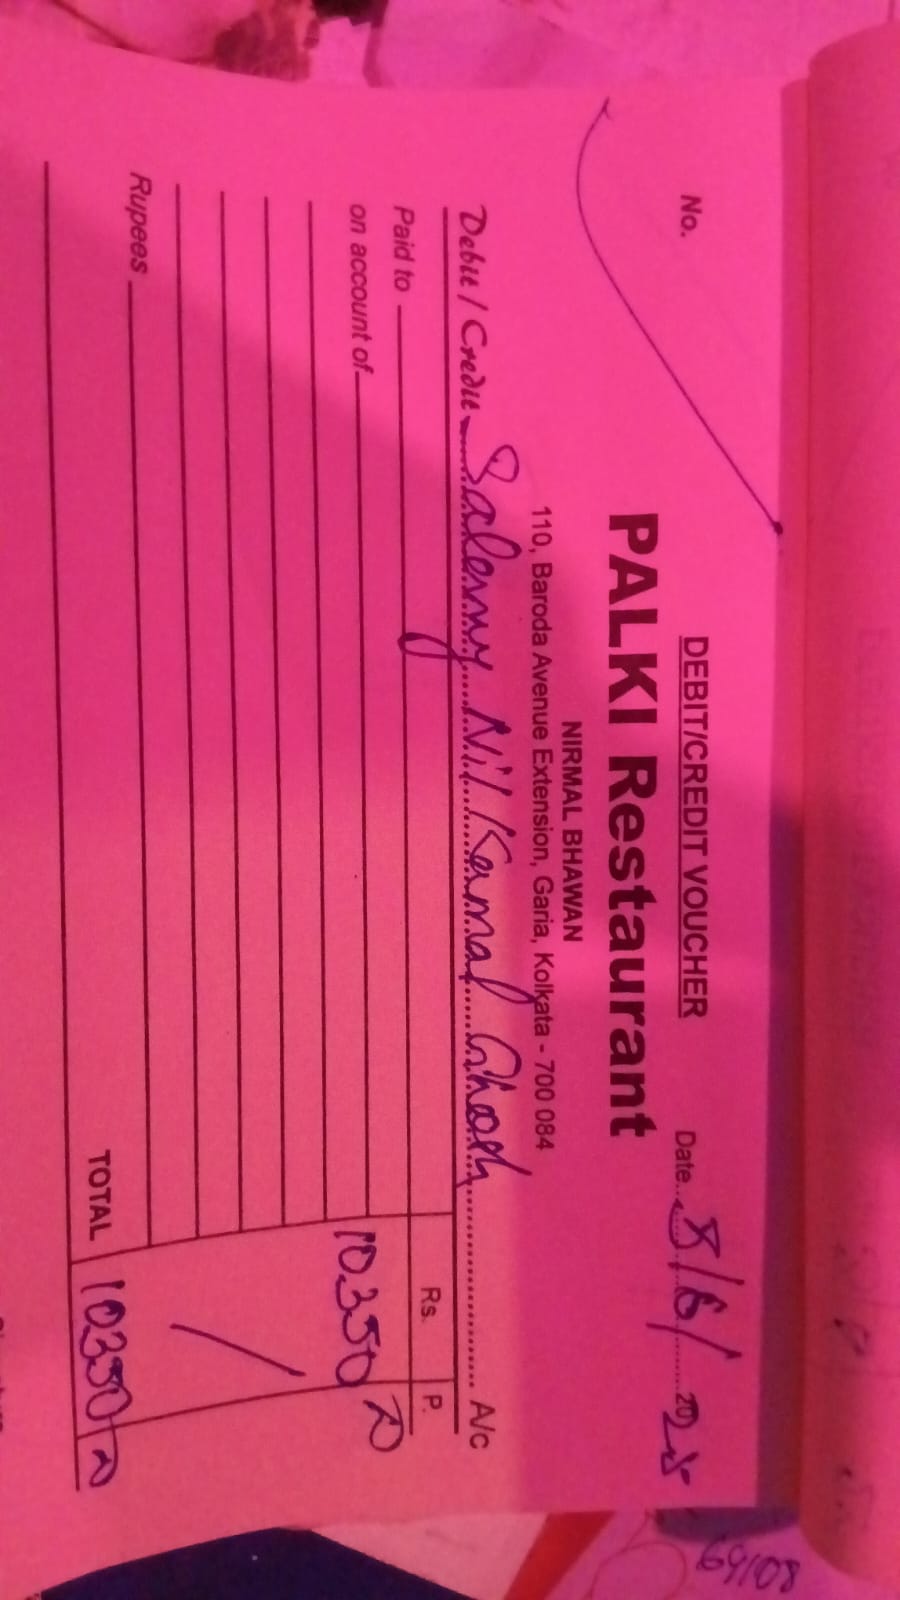 DEBIT/CREDIT VOUCHER
No. Date 8/6/2025
PALKI Restaurant
NIRMAL BHAWAN
110, Baroda Avenue Extension, Garia, Kolkata - 700 084
Debit / Credit Nil Kamal Ghosh A/c
Paid to Rs. P.
on account of 10350
Rupees
TOTAL 10350